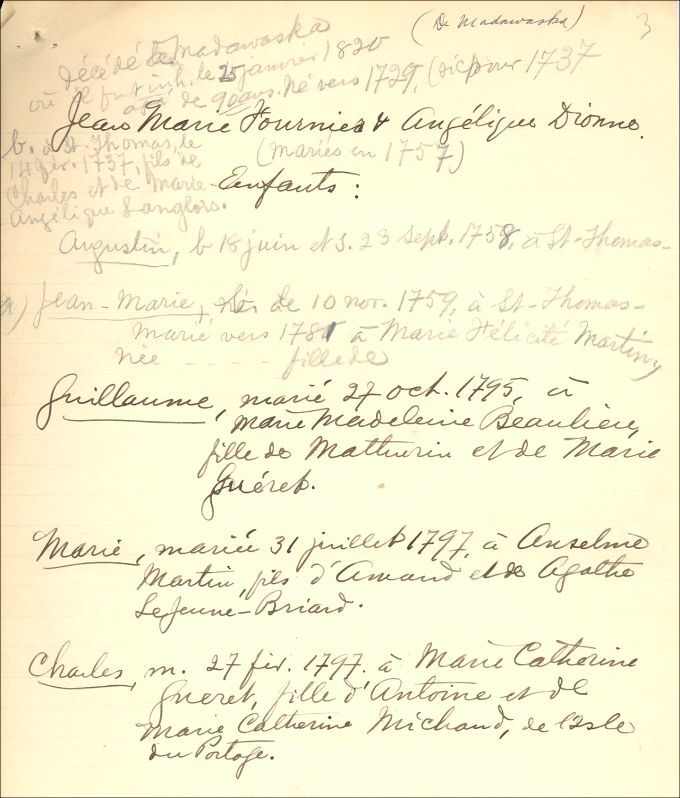 (De Madawaska) 3
Décédé à Madawaska
où il fut inh. le 25 janvier 1820
âgé de 90 ans. Né vers 1729, (sic pour 1737
Jean Marie Fournier & Angélique Dionne.
(mariés en 1757)
b. à St. Thomas, le
14 fév. 1737, fils de
Charles et de Marie-
Angélique Langlois.
Enfants:
Augustin, b 18 juin et s. 23 sept. 1758, à St-Thomas-
a) Jean-Marie, de 10 nov. 1759, à St-Thomas-
Marié vers 1781 à Marie Félicité Martin,
née - - - - fille de
Guillaume, marié 27 oct. 1795, à
Marie Madeleine Beaulieu,
fille de Mathurin et de Marie
Guéret.
Marie, mariée 31 juillet 1797, à Anselme
Martin, fils d'Amand et de Agathe
LeJeune-Briard.
Charles, m. 27 fév. 1797. à Marie Catherine
Gueret, fille d'Antoine et de
Marie Catherine Michaud, de l'Isle
du Portage.